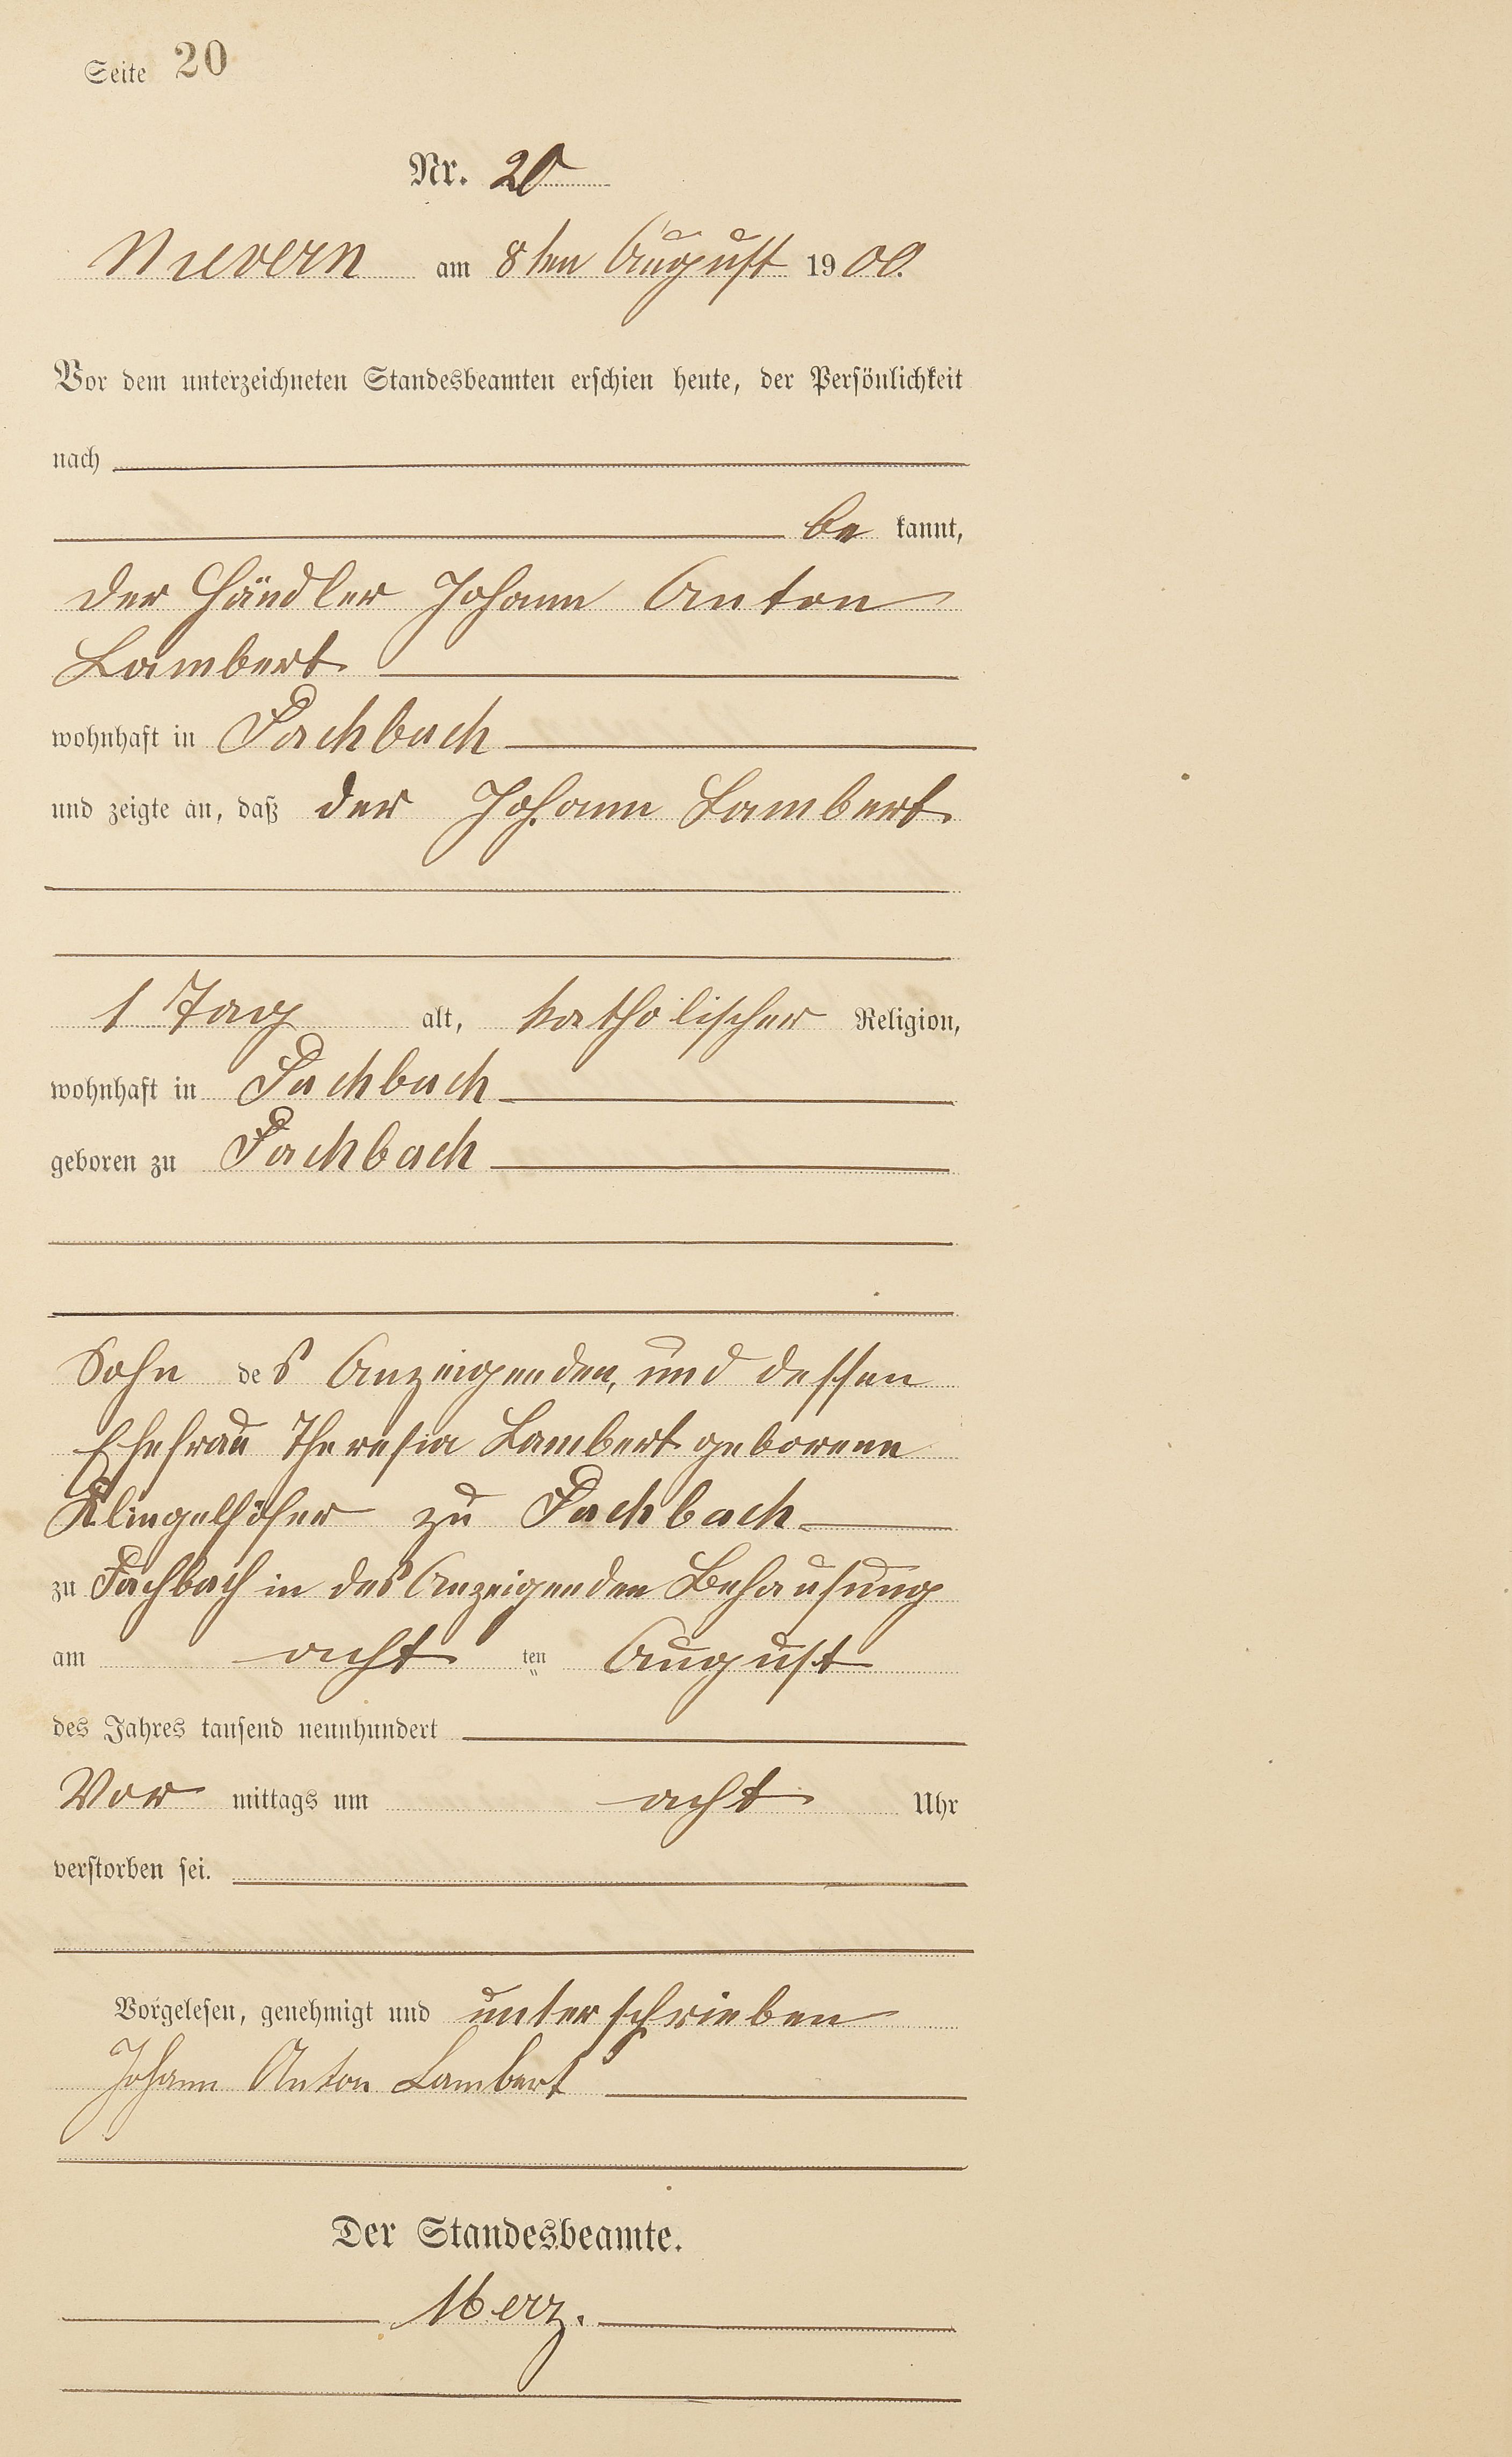 Seite 20
Nr. 20
Nievern am 8ten August 1900.
Vor dem unterzeichneten Standesbeamten erschien heute, der Persönlichkeit
nach
be kannt,
der Händler Johann Anton
Lambert
wohnhaft in Fachbach
und zeigte an, daß der Johann Lambert
1 Tag alt, katholischer Religion,
wohnhaft in Fachbach
geboren zu Fachbach
Sohn des Anzeigenden, und dessen
Ehefrau Theresia Lambert geborene
Klingelhöfer zu Fachbach
zu Fachbach in des Anzeigenden Behausung
am acht ten August
des Jahres tausend neunhundert
Vor mittags um acht Uhr
verstorben sei.
Vorgelesen, genehmigt und unterschrieben
Johann Anton Lambert
Der Standesbeamte.
Merz.